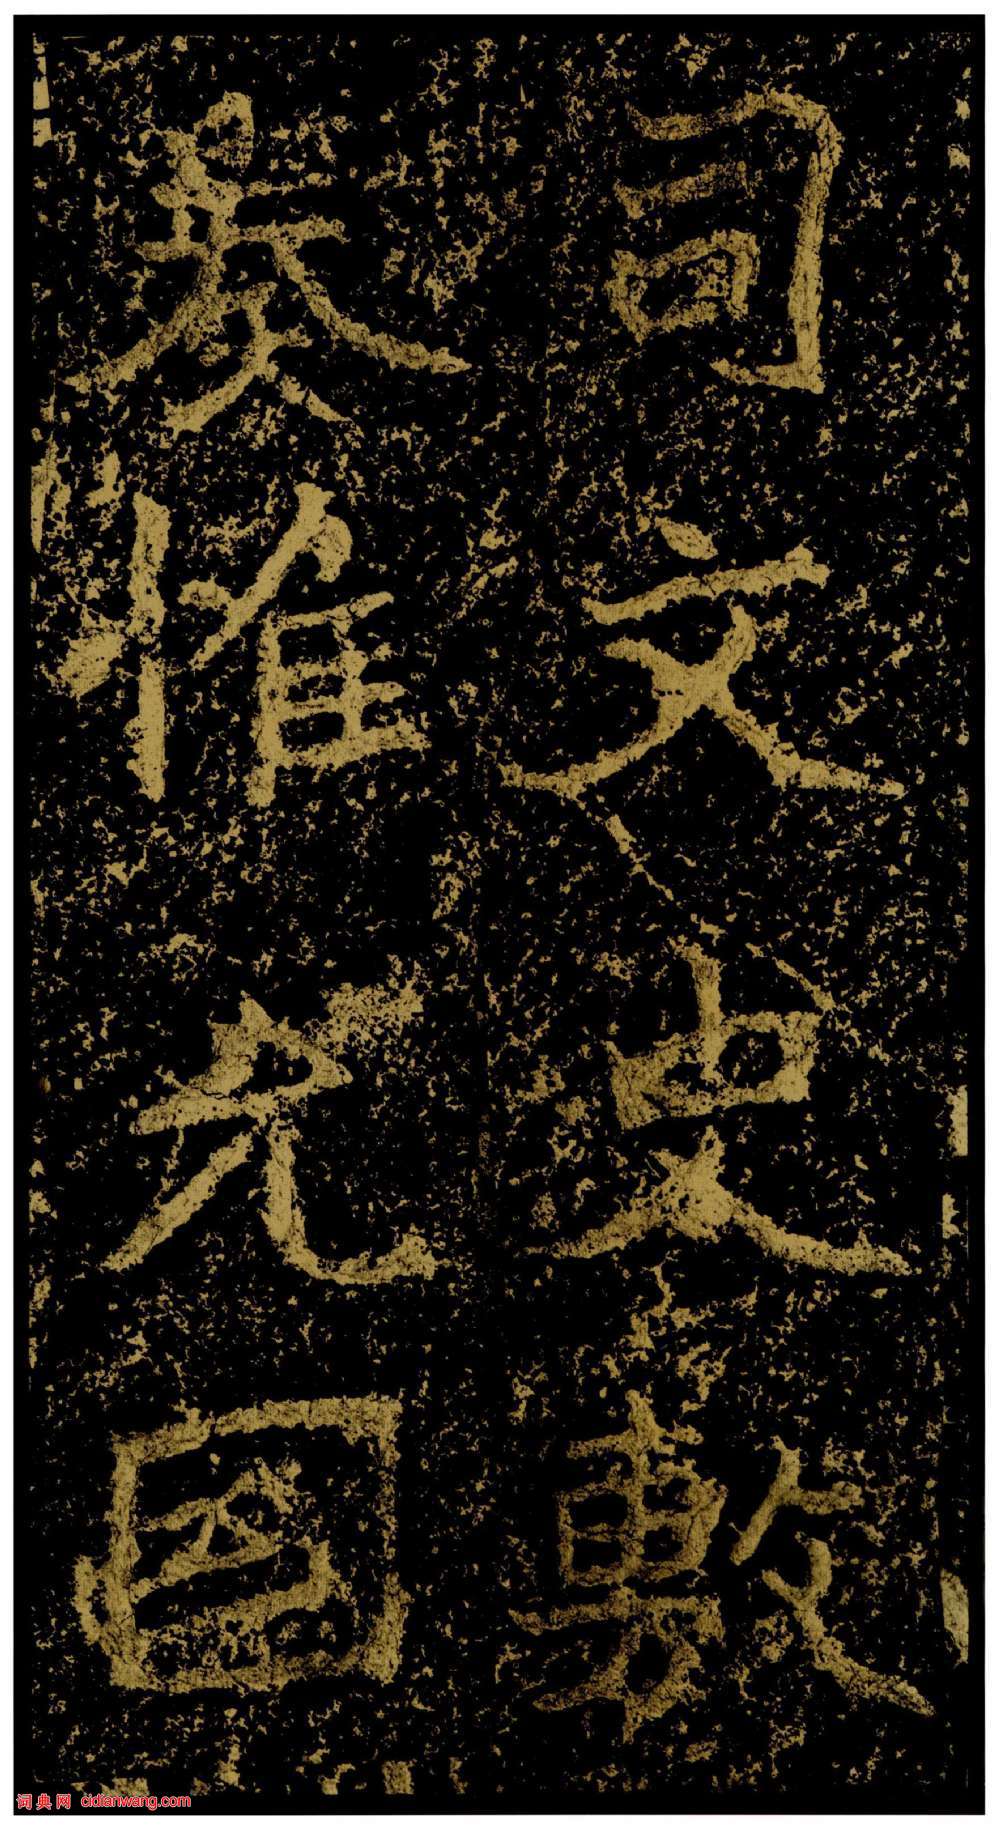 司文史敷
奏惟允國
词典网 cidianwang.com